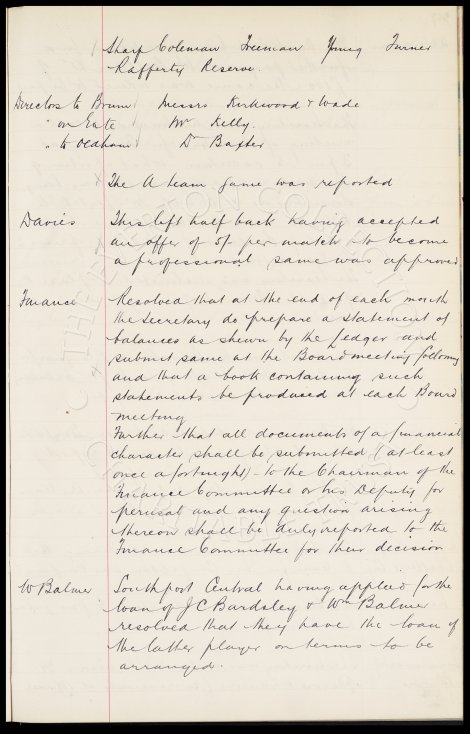 Sharp Coleman Freeman Young Turner
Rafferty Reserve.
Directors to Brum Messrs Kirkwood & Wade
" on Gate Mr Kelly.
" to Oldham Dr Baxter
The A team game was reported
Davies This left half back having accepted
an offer of 5/- per match to become
a professional same was approved
Finance Resolved that at the end of each month
the Secretary do prepare a statement of
balances as shewn by the Ledger and
submit same at the Board meeting following
and that a book containing such
statements be produced at each Board
meeting
Further that all documents of a financial
character shall be submitted (at least
once a fortnight) to the Chairman of the
Finance Committee or his Deputy for
perusal and any question arising
thereon shall be duly reported to the
Finance Committee for their decision
W Balmer Southport Central having applied for the
loan of J C Bardsley & Wm Balmer
resolved that they have the loan of
the latter player on terms to be
arranged.